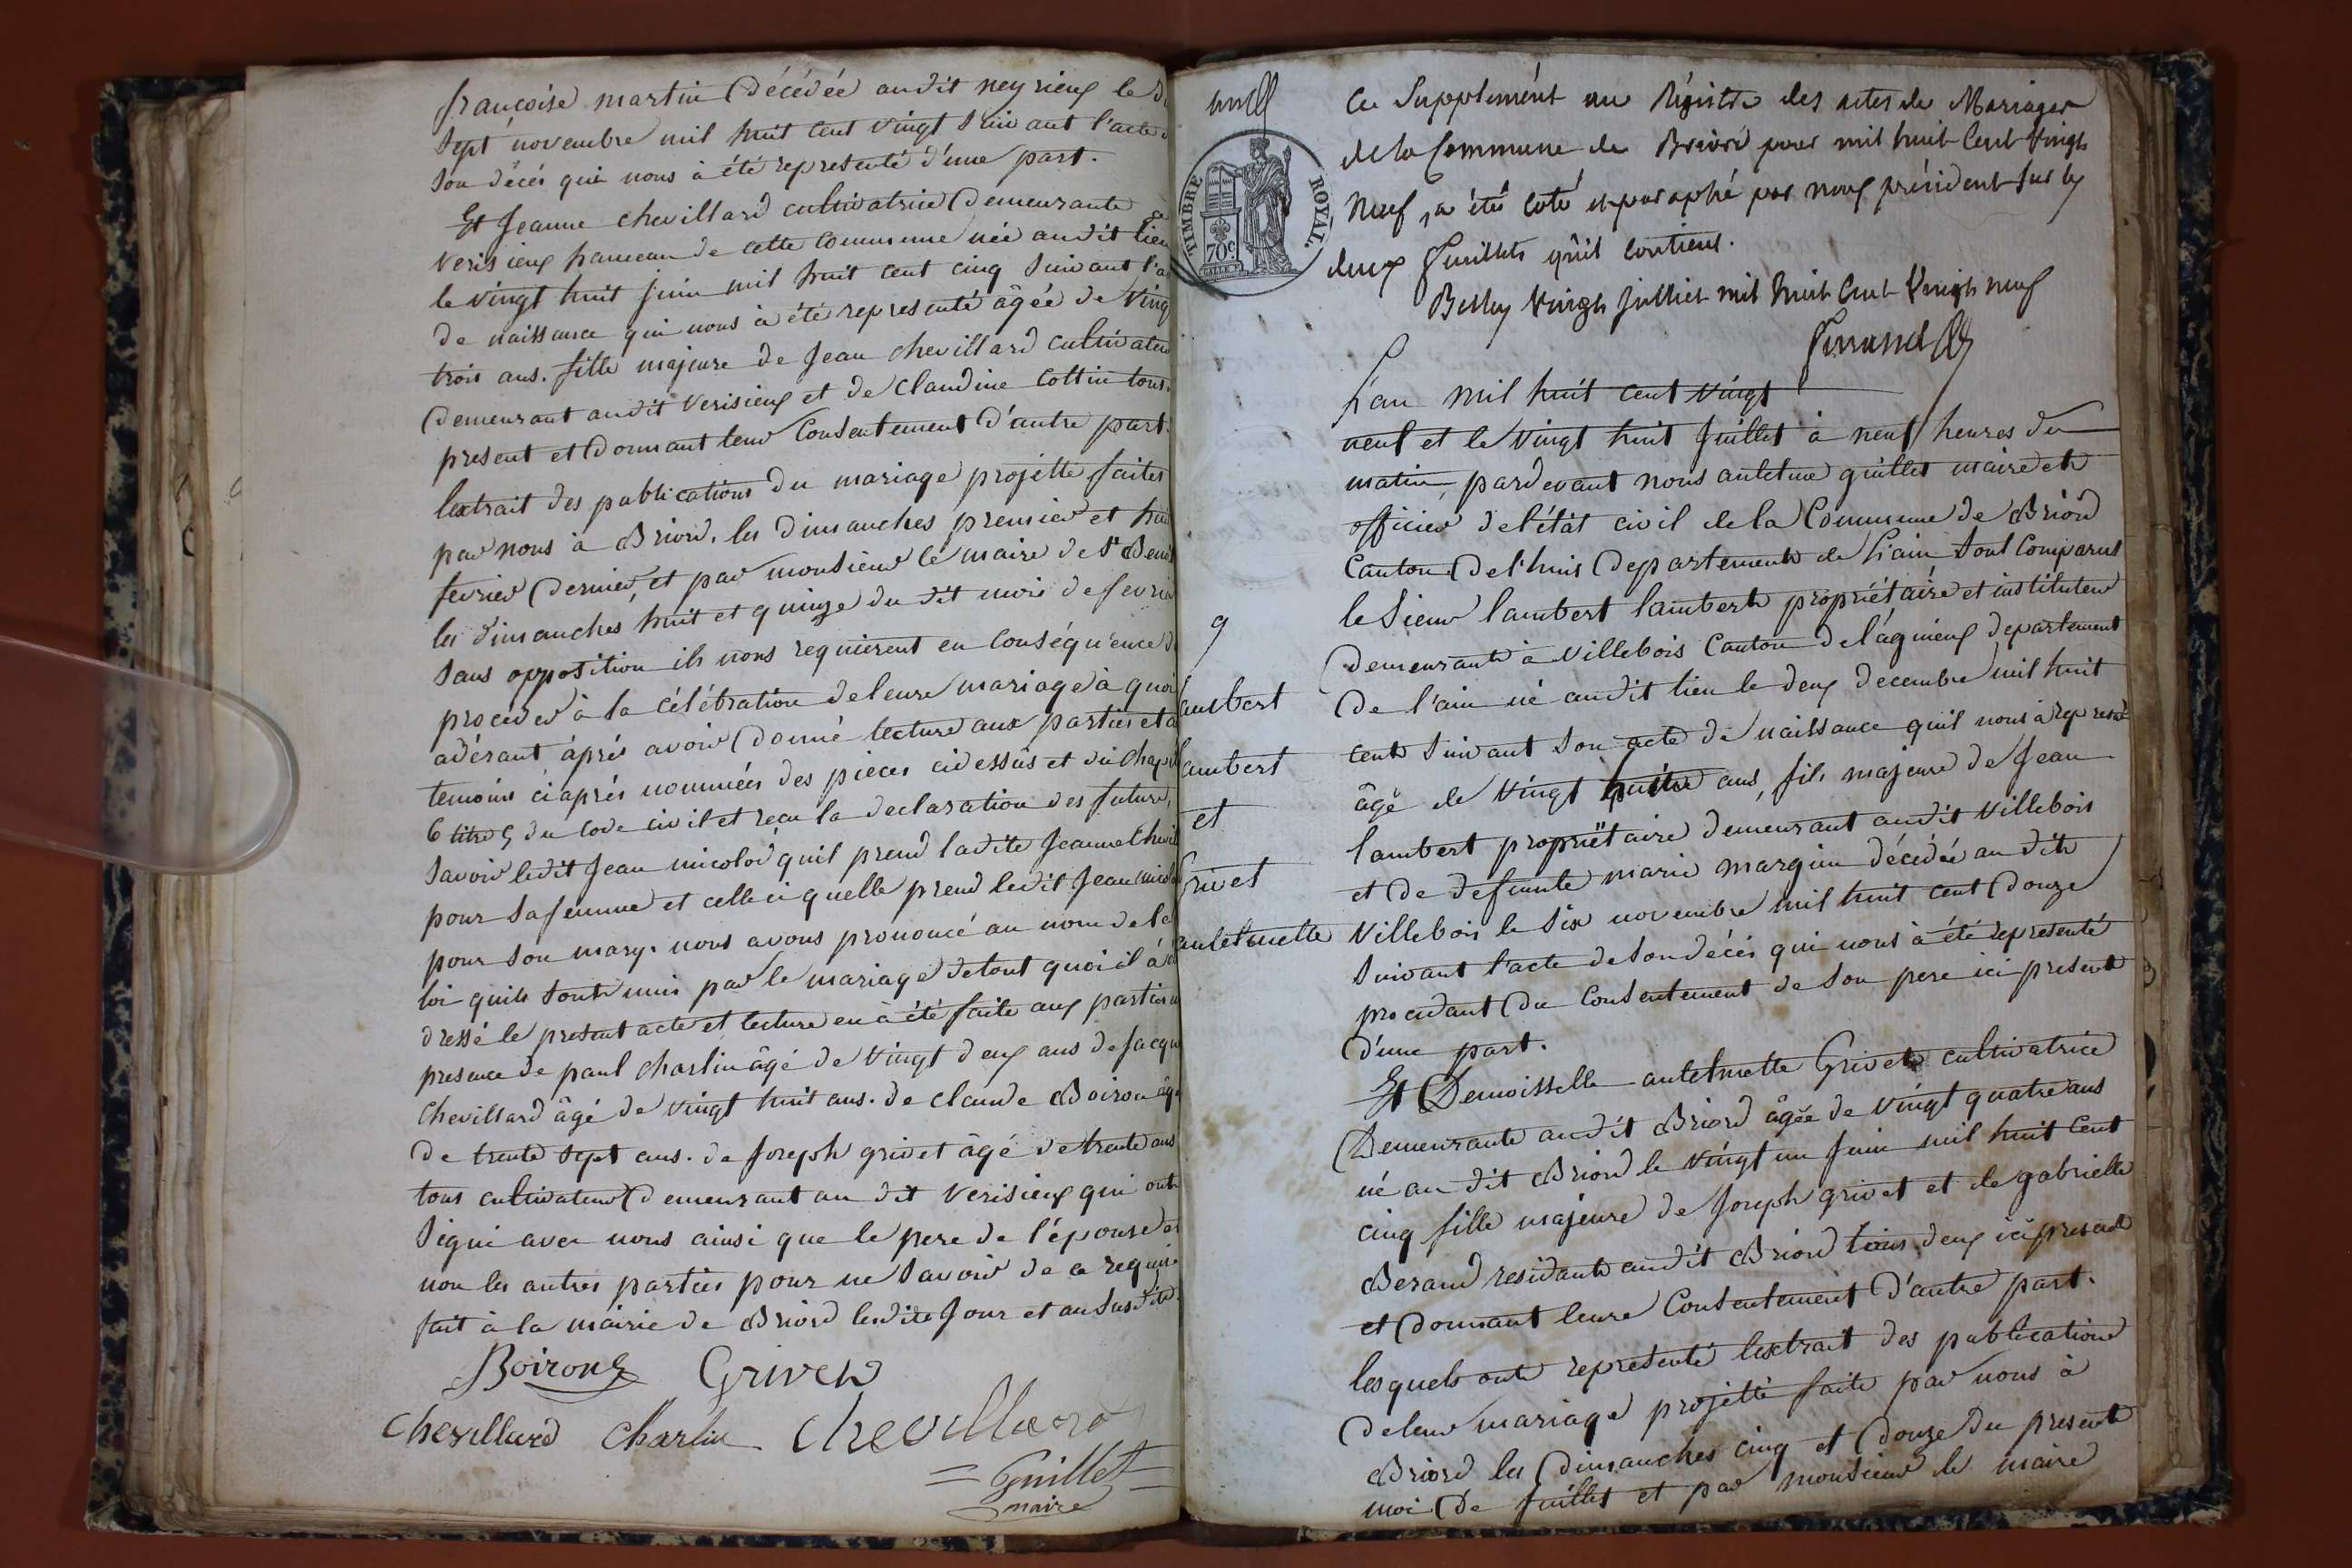 françoise martin décédée audit neyrieux le
sept novembre mil huit cent vingt suivant l'acte
son décés qui nous à été representé d'une part.
Et Jeanne chevillard cultivatrice demeurante à
verisieux hameau de cette commune née audit lieu
le vingt huit juin mil huit cent cinq suivant l'a
de naissance qui nous à été representé âgée de ving
trois ans. fille majeure de Jean chevillard cultivateu
demeurant audit verisieux et de claudine Cottin tous
present et donnant leur Consentement d'autre part.
lextrait des publications du mariage projetté faites
par nous à Briord, les dimanches premier et hui
fevrier dernier, et par monsieur le maire de St Benoi
les dimanches huit et quinze du dit mois de fevrie
sans opposition ils nous requierent en conséquence d
proceder à la célébration deleure mariage à quoi
adérant aprés avoir donné lecture aux parties et a
temoins ciaprés nommées des pieces cidessus et du chapi
6 titre 5 du Code civil et reçu la declaration des future,
savoir ledit Jean micolod quil prend ladite Jeanne Chevil
pour sa femme et celle ci quelle prend ledit Jean micol
pour son mary. nous avons prononcé au nom de la
loi quils sont unis par le mariage de tout quoi il à
dressé le present acte et lecture en à été faite aux parties
presence de paul charlin âgé de vingt deux ans de Jacqu
Chevillard âgé de vingt huit ans. de claude Boiron âg
de trente sept ans. de Joseph grivet âgé de trente ans
tous cultivateurs demeurant au dit verisieux qui ont
signé avec nous ainsi que le pere de l'épouse et
non les autres parties pour ne savoir de ce requi
fait à la mairie de Briord lesdits Jour et an susdits.
Boiron Grivet
chevillard Charlin chevillard
Guillet
maire
Ce Supplément au Régistre des actes de Mariages
de la Commune de Briord pour mil huit Cent Vingt
Neuf, a été coté et paraphé par nous président sur les
deux feuillets qu'il contient.
Belley Vingt juillet mil huit Cent Vingt neuf
TIMBRE ROYAL.
70c.
L'an mil huit cent vingt
neuf et le vingt huit Juillet à neuf heures du
matin, pardevant nous antelme guillet maire et
officier de l'état civil de la Commune de Briord
Canton de l'huis Departement de L'ain sont Comparus
9
le sieur lambert lambert propriétaire et instituteur
demeurant à villebois Canton de lagnieux departement
lambert
de l'ain né audit lieu le deux decembre mil huit
cent suivant son acte de naissance quil nous à represté
lambert
âgé de vingt huit ans, fils majeure de Jean
et
lambert propriétaire demeurant audit villebois
Grivet
et de defunte marie margin décédée au dit
antelmette
villebois le six novembre mil huit cent douze
suivant l'acte de son décés qui nous à été representé
procedant du Consentement de son pere ici present
d'une part.
Et Demoisselle antelmette Grivet cultivatrice
Demeurante audit Briord âgée de vingt quatre ans
né au dit Briord le vingt un Juin mil huit Cent
cinq fille majeure de Joseph grivet et de gabrielle
Beraud residant audit Briord tous deux ici present
et donnant leure Consentement d'autre part.
les quels ont representé lextrait des publications
deleur mariage projetté faite par nous à
Briord les dimanches cinq et douze du present
moi de Juillet et par monsieur le maire